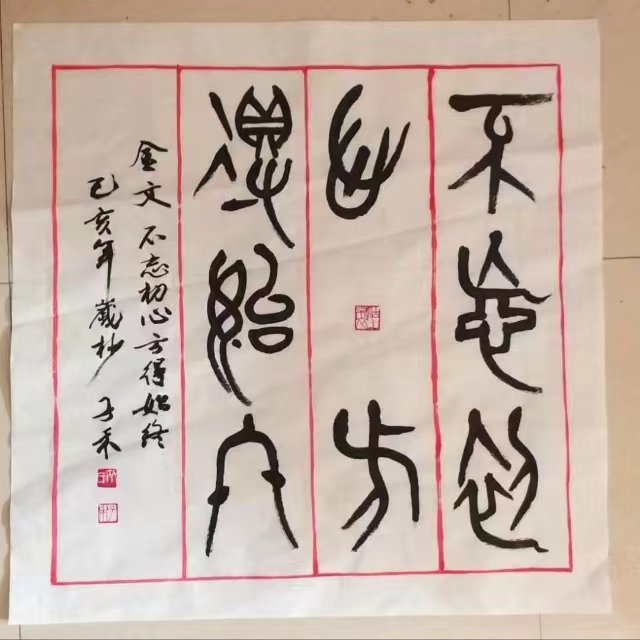 不忘初
心方
得始终
金文不忘初心方得始终
己亥年岁杪子禾